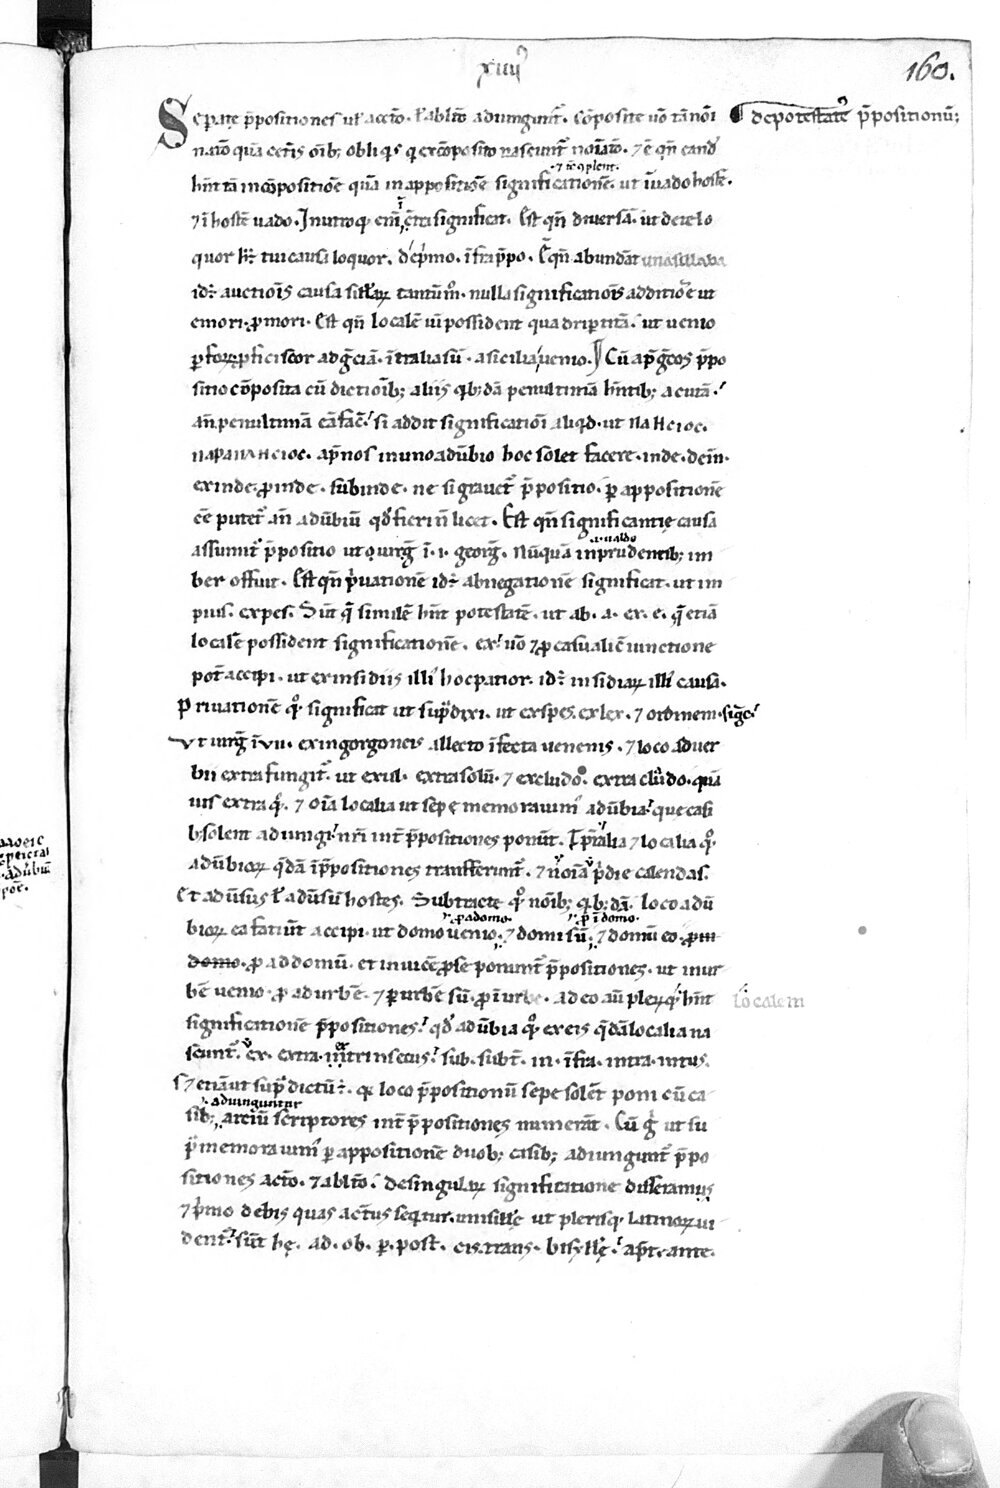 xiiii
160.
Separate p̄positiones ut̄ accto. ł ablto adiungunt̄. cōposite ūo tā noī
de potestate p̄positionū;
natiō quā ceteris oīb; obliqis q excōposito nascunt̄ noīatiō. ⁊ ē qn̄ eand̄
⁊ īcōplent.
hn̄t tā incōpositiōe quā in appositiōe significationē. ut īuado hostē.
⁊ ī hostē uado. In utroq; eni ī cōtra significat. Est qn̄ diuersā. ut de te lo
quor hoc ē tui causa loquor. dep̄mo. īfra p̄mo. Est qn̄ abundat una sillaba
id ē auctiōis causa sillabarum tantummodo. nulla significatiōis additiōe ut
emori. p̄ mori. Est qn̄ localē uī possident quadripertitā. ut uenio
p forum p̄ficiscor ad greciā. ī italia sū. a sicilia uenio. Cū ap̄ grecos p̄po
sitio cōposita cū dictiōib; aliis qb;dā penultimā hn̄tib; acutā.
an̄ penultimā eā fac̄. si addit significatiōi aliqd. ut ΠΛΗCΙΟC.
ΠΑΡΑΠΛΗCΙΟC. ap̄ nos in uno aduerbio hoc solet facere. inde. dein̄.
exinde. p̄inde. subinde. ne si grauet̄ p̄positio. p appositionē
eē putet̄ an̄ aduerbiū qd̄ fieri n̄ licet. Est qn̄ significantię causa
.i. ualde
assumit̄ p̄positio ut o uirḡ ī .i. georḡ. Nūquā inprudentib; im
ber offuit. Est qn̄ priuationē id ē abnegationē significat. ut im
pius. expes. Sūt q̄ similē hn̄t potestatē. ut ab. a. ex. e. q̄ etiā
localē possident significationē. ex. ūo ⁊ p̄ casuali cōiunctione
pot̄ accipi. ut ex insidiis illi hoc patior. id ē insidiarum illi causa.
Priuationē qq̄ significat ut supradixi. ut exspes. exlex. ⁊ ordinem. sigc̄.
Vt uirḡ ī vii. exin gorgoneis allecto īfecta uenenis. ⁊ loco aduer
bii extra fungit̄. ut exul. extra solū. ⁊ excludo. extra cludo. quā
uis extra qq̄. ⁊ oīa localia ut sepe memorauim̄ aduerbia. que casi
b; solent adiungi. nri int̄ p̄positiones ponūt. Tpralia ⁊ localia qq̄.
aduerbiorum qdā ī p̄positiones transferunt̄. ⁊ noīa pridie calendas.
Et aduersus ł aduersū hostes. Subtracte qq̄ noīb; qb;dā. loco adū
.p̄ a domo. .p̄ ī domo.
biorum ea fatiūt accipi. ut domo uenio. ⁊ domi sū. ⁊ domū eo. p̄ in
domo. p̄ ad domū. et inuicē p̄ se ponunt̄ p̄positiones. ut in ur
bē uenio. p̄ ad urbē. ⁊ p urbē sū. p̄ ī urbe. adeo aut̄ plerūq; hn̄t
localem
significationē p̄positiones. qd̄ aduerbia qq̄ ex eis qdā localia na
scunt̄. ex. extra. extrinsecus. sub. subt̄. in. īfra. intra. intus.
S; ⁊ etiā ut supradictū ē. q̄ loco p̄positionū sepe solēt poni cū ca
adiunguntur
sib; artiū scriptores int̄ p̄positiones numerāt. Cū g̊ ut su
p̄ memorauim̄ p appositionē duob; casib; adiungunt̄ p̄po
sitiones acto. ⁊ ablto. de singularum significatione disseramus;
⁊ primo de his quas actiūs sequit̄ur. unisillę ut plerisq; latinorum ui
dent̄. sūt hę. ad. ob. p. post. cis. trans. bisyllę. apud. ante.